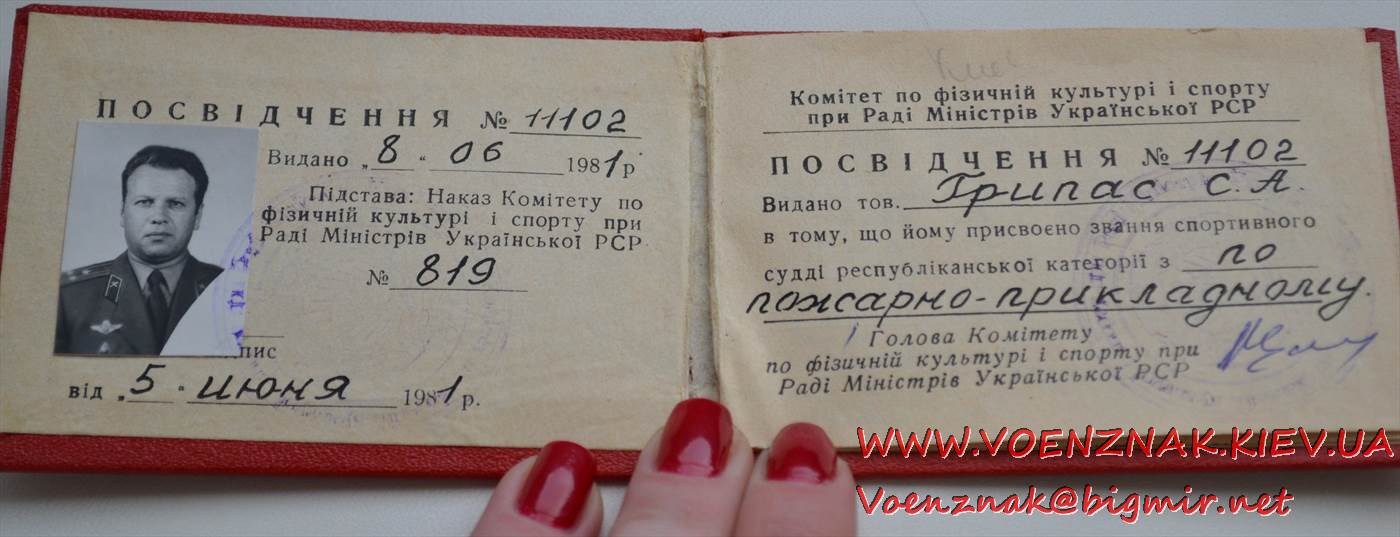 ПОСВІДЧЕННЯ № 11102
Видано „8“ 06 1981р
Підстава: Наказ Комітету по
фізичній культурі і спорту при
Раді Міністрів Української РСР
№ 819
пис
від „5“ июня 1981р.
Комітет по фізичній культурі і спорту
при Раді Міністрів Української РСР
ПОСВІДЧЕННЯ № 11102
Видано тов. Грипас С. А.
в тому, що йому присвоєно звання спортивного
судді республіканської категорії з по
пожарно-прикладному.
Голова Комітету
по фізичній культурі і спорту при
Раді Міністрів Української РСР
WWW.VOENZNAK.KIEV.UA
Voenznak@bigmir.net